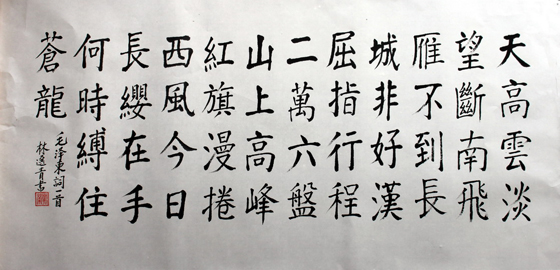 天高雲淡
望斷南飛
雁不到長
城非好漢
屈指行程
二萬六盤
山上高峰
紅旗漫捲
西風今日
長纓在手
何時縛住
蒼龍
毛泽東詞一首
林逸青書